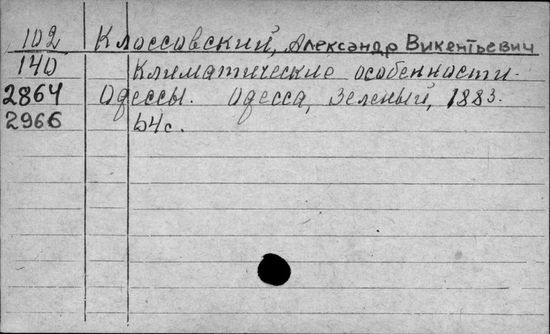 102 Клоссовский, Александр Викентьевич
140 Климатические особенности
2864 Одессы. Одесса, Зеленый, 1883.
2966 64с.